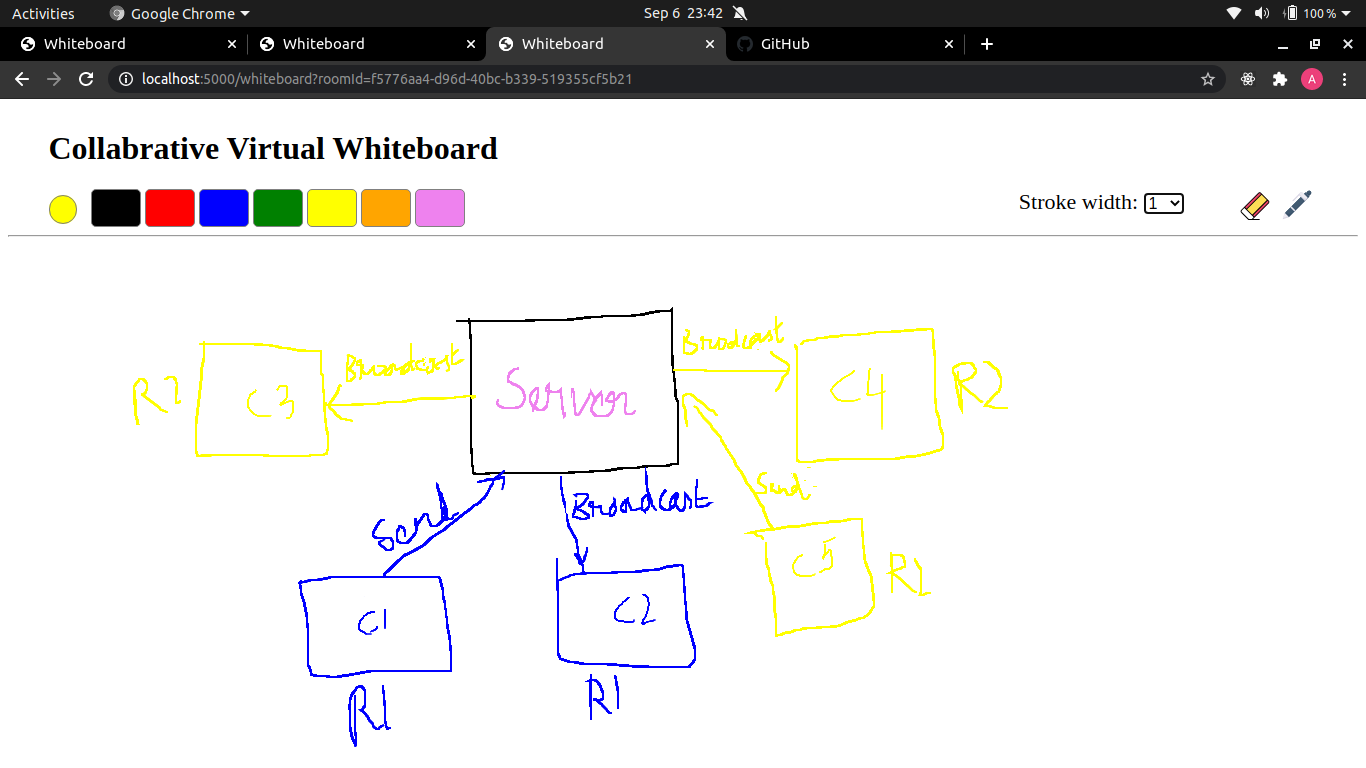 Activities Google Chrome Sep 6 23:42 100 %
Whiteboard Whiteboard Whiteboard GitHub
localhost:5000/whiteboard?roomId=f5776aa4-d96d-40bc-b339-519355cf5b21 A
Collabrative Virtual Whiteboard
Stroke width: 1
Broadcast
Broadcast
R2 C3 Server C4 R2
Send Broadcast Send
C5 R2
C1 C2
R1 R1